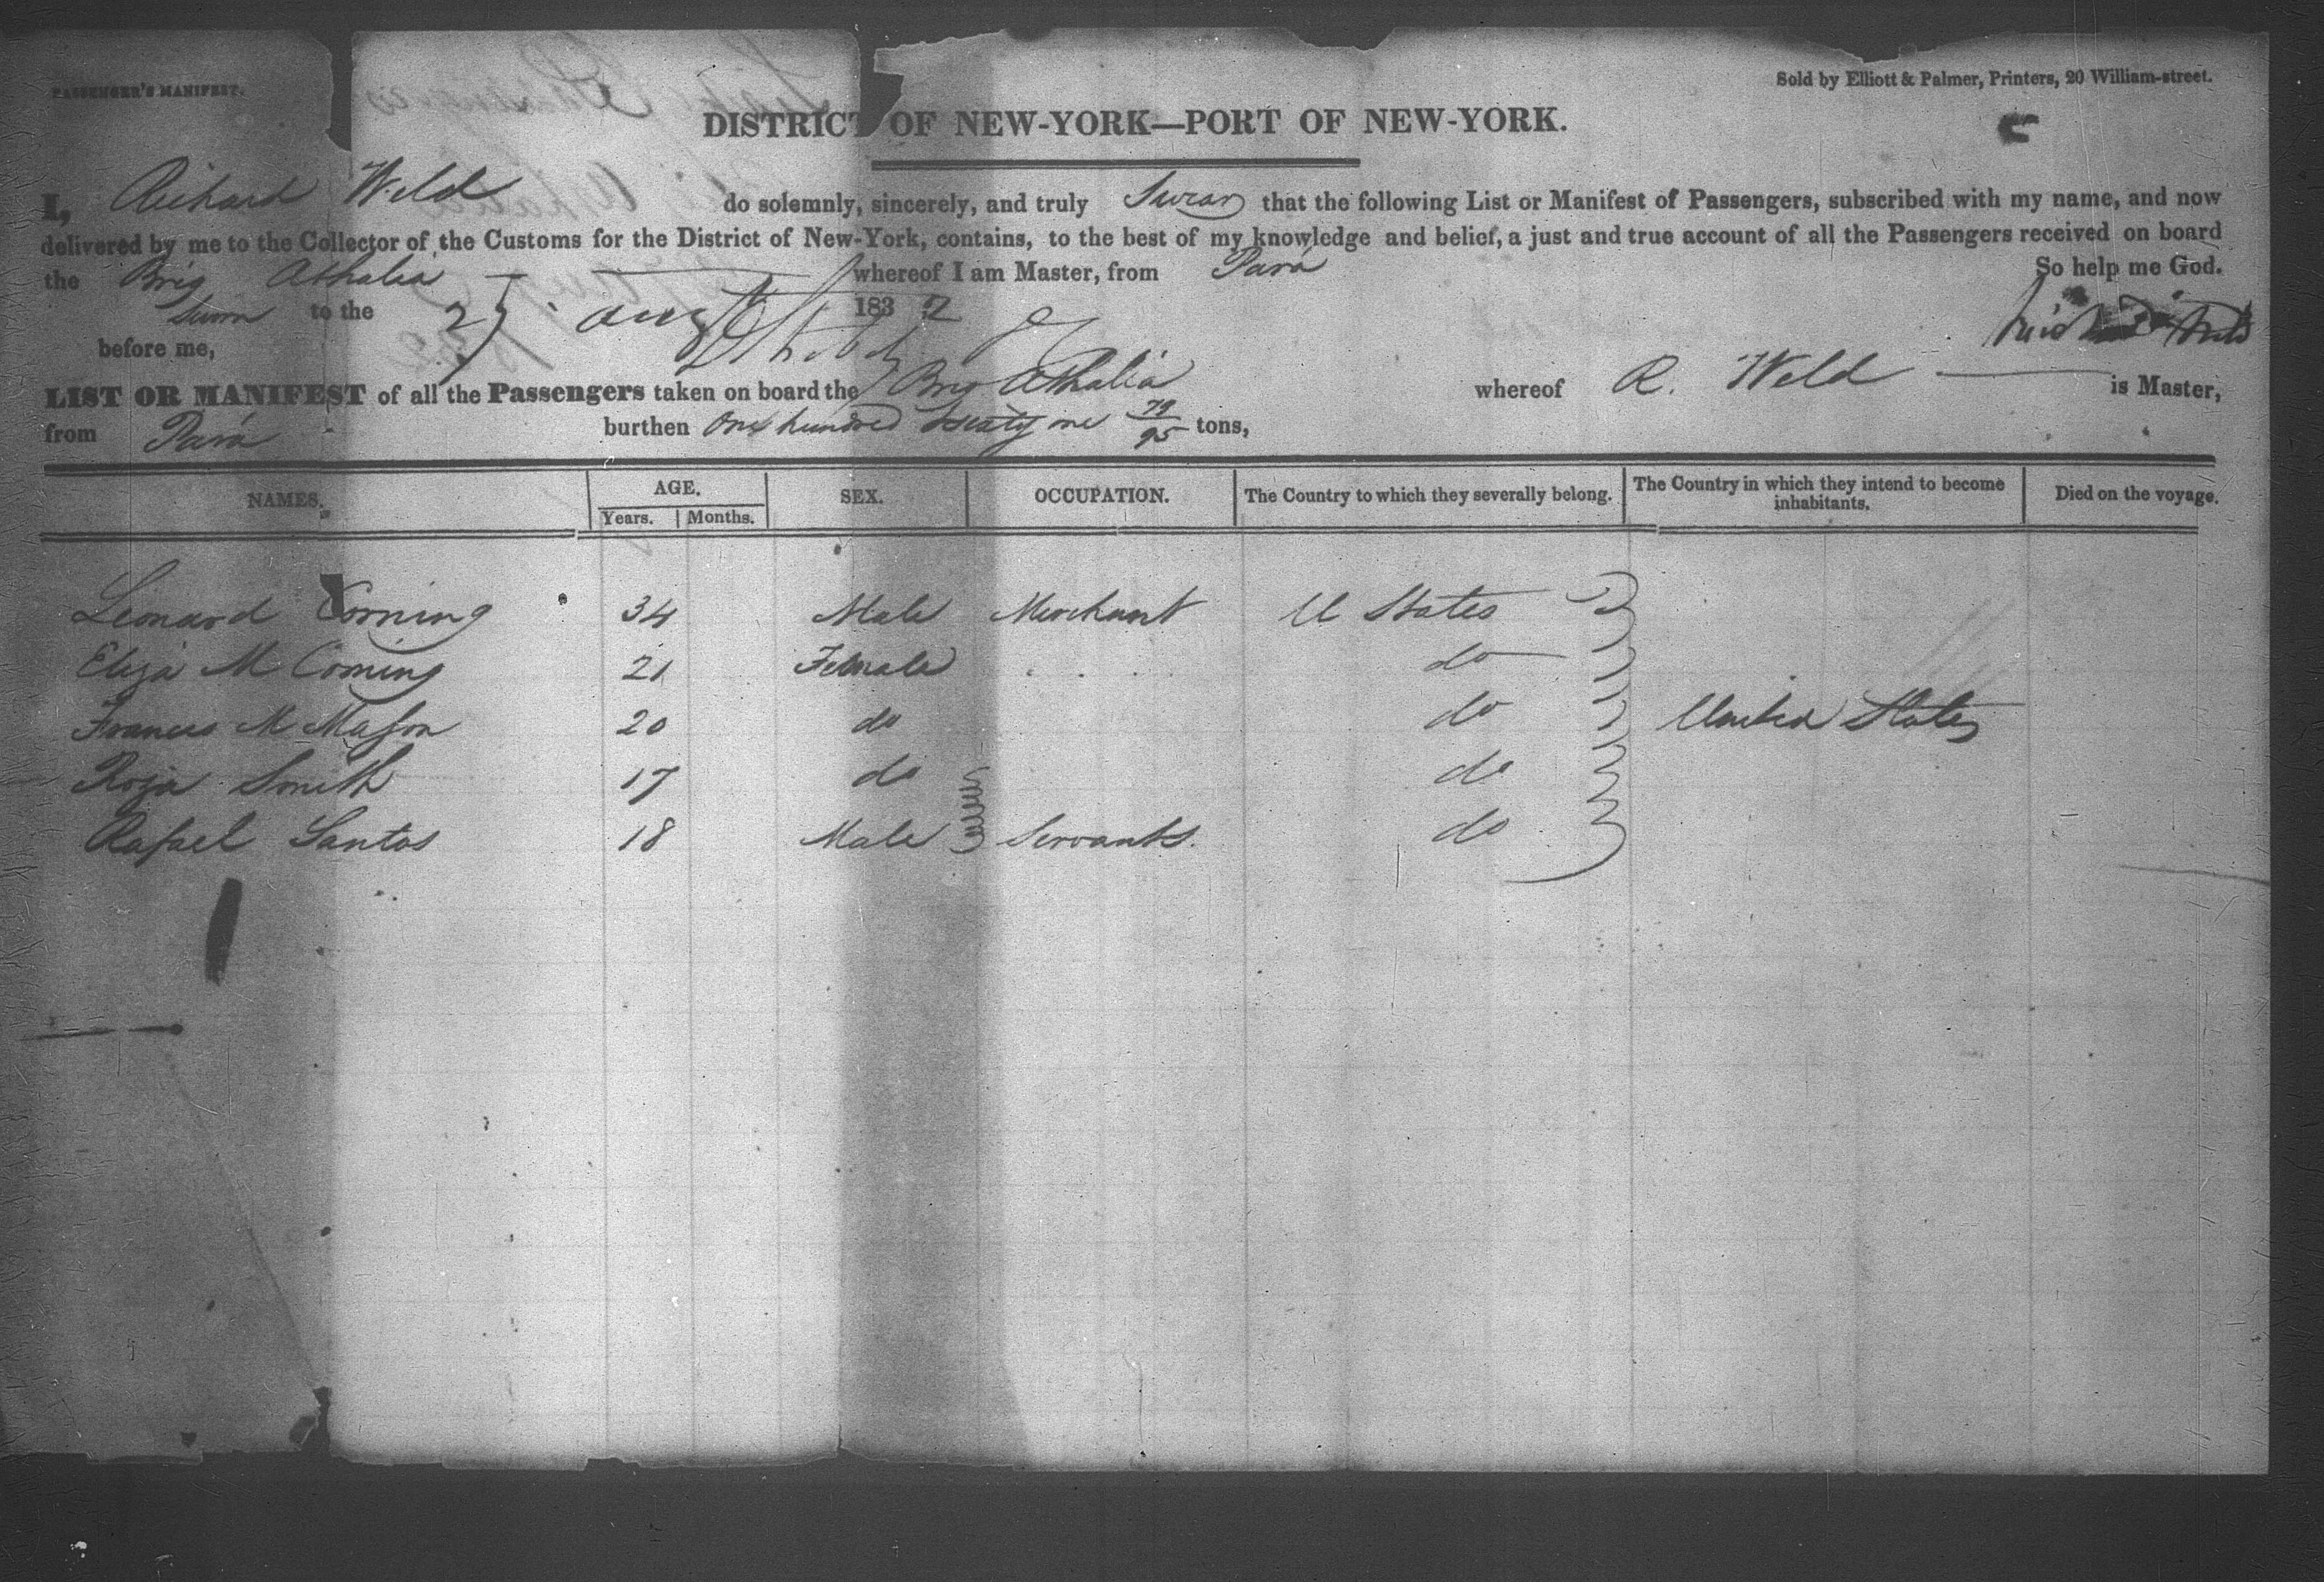 PASSENGER'S MANIFEST.
Sold by Elliott & Palmer, Printers, 20 William-street.
DISTRICT OF NEW-YORK—PORT OF NEW-YORK.
I, Richard Weld do solemnly, sincerely, and truly Swear that the following List or Manifest of Passengers, subscribed with my name, and now
delivered by me to the Collector of the Customs for the District of New-York, contains, to the best of my knowledge and belief, a just and true account of all the Passengers received on board
the Brig Athalia whereof I am Master, from Pará So help me God.
Sworn to the 27 augt 1832
before me,
LIST OR MANIFEST of all the Passengers taken on board the Brig Athalia whereof R. Weld is Master,
from Pará burthen One hundred Sixty one 79/95 tons,
NAMES. AGE. Years. Months. SEX. OCCUPATION. The Country to which they severally belong. The Country in which they intend to become inhabitants. Died on the voyage.
Leonard Corning 34 Male Merchant U States
Eliza M Corning 21 Female do
Frances M Mason 20 do do United States
Roza Smith 17 do do
Rafael Santos 18 Male Servants. do